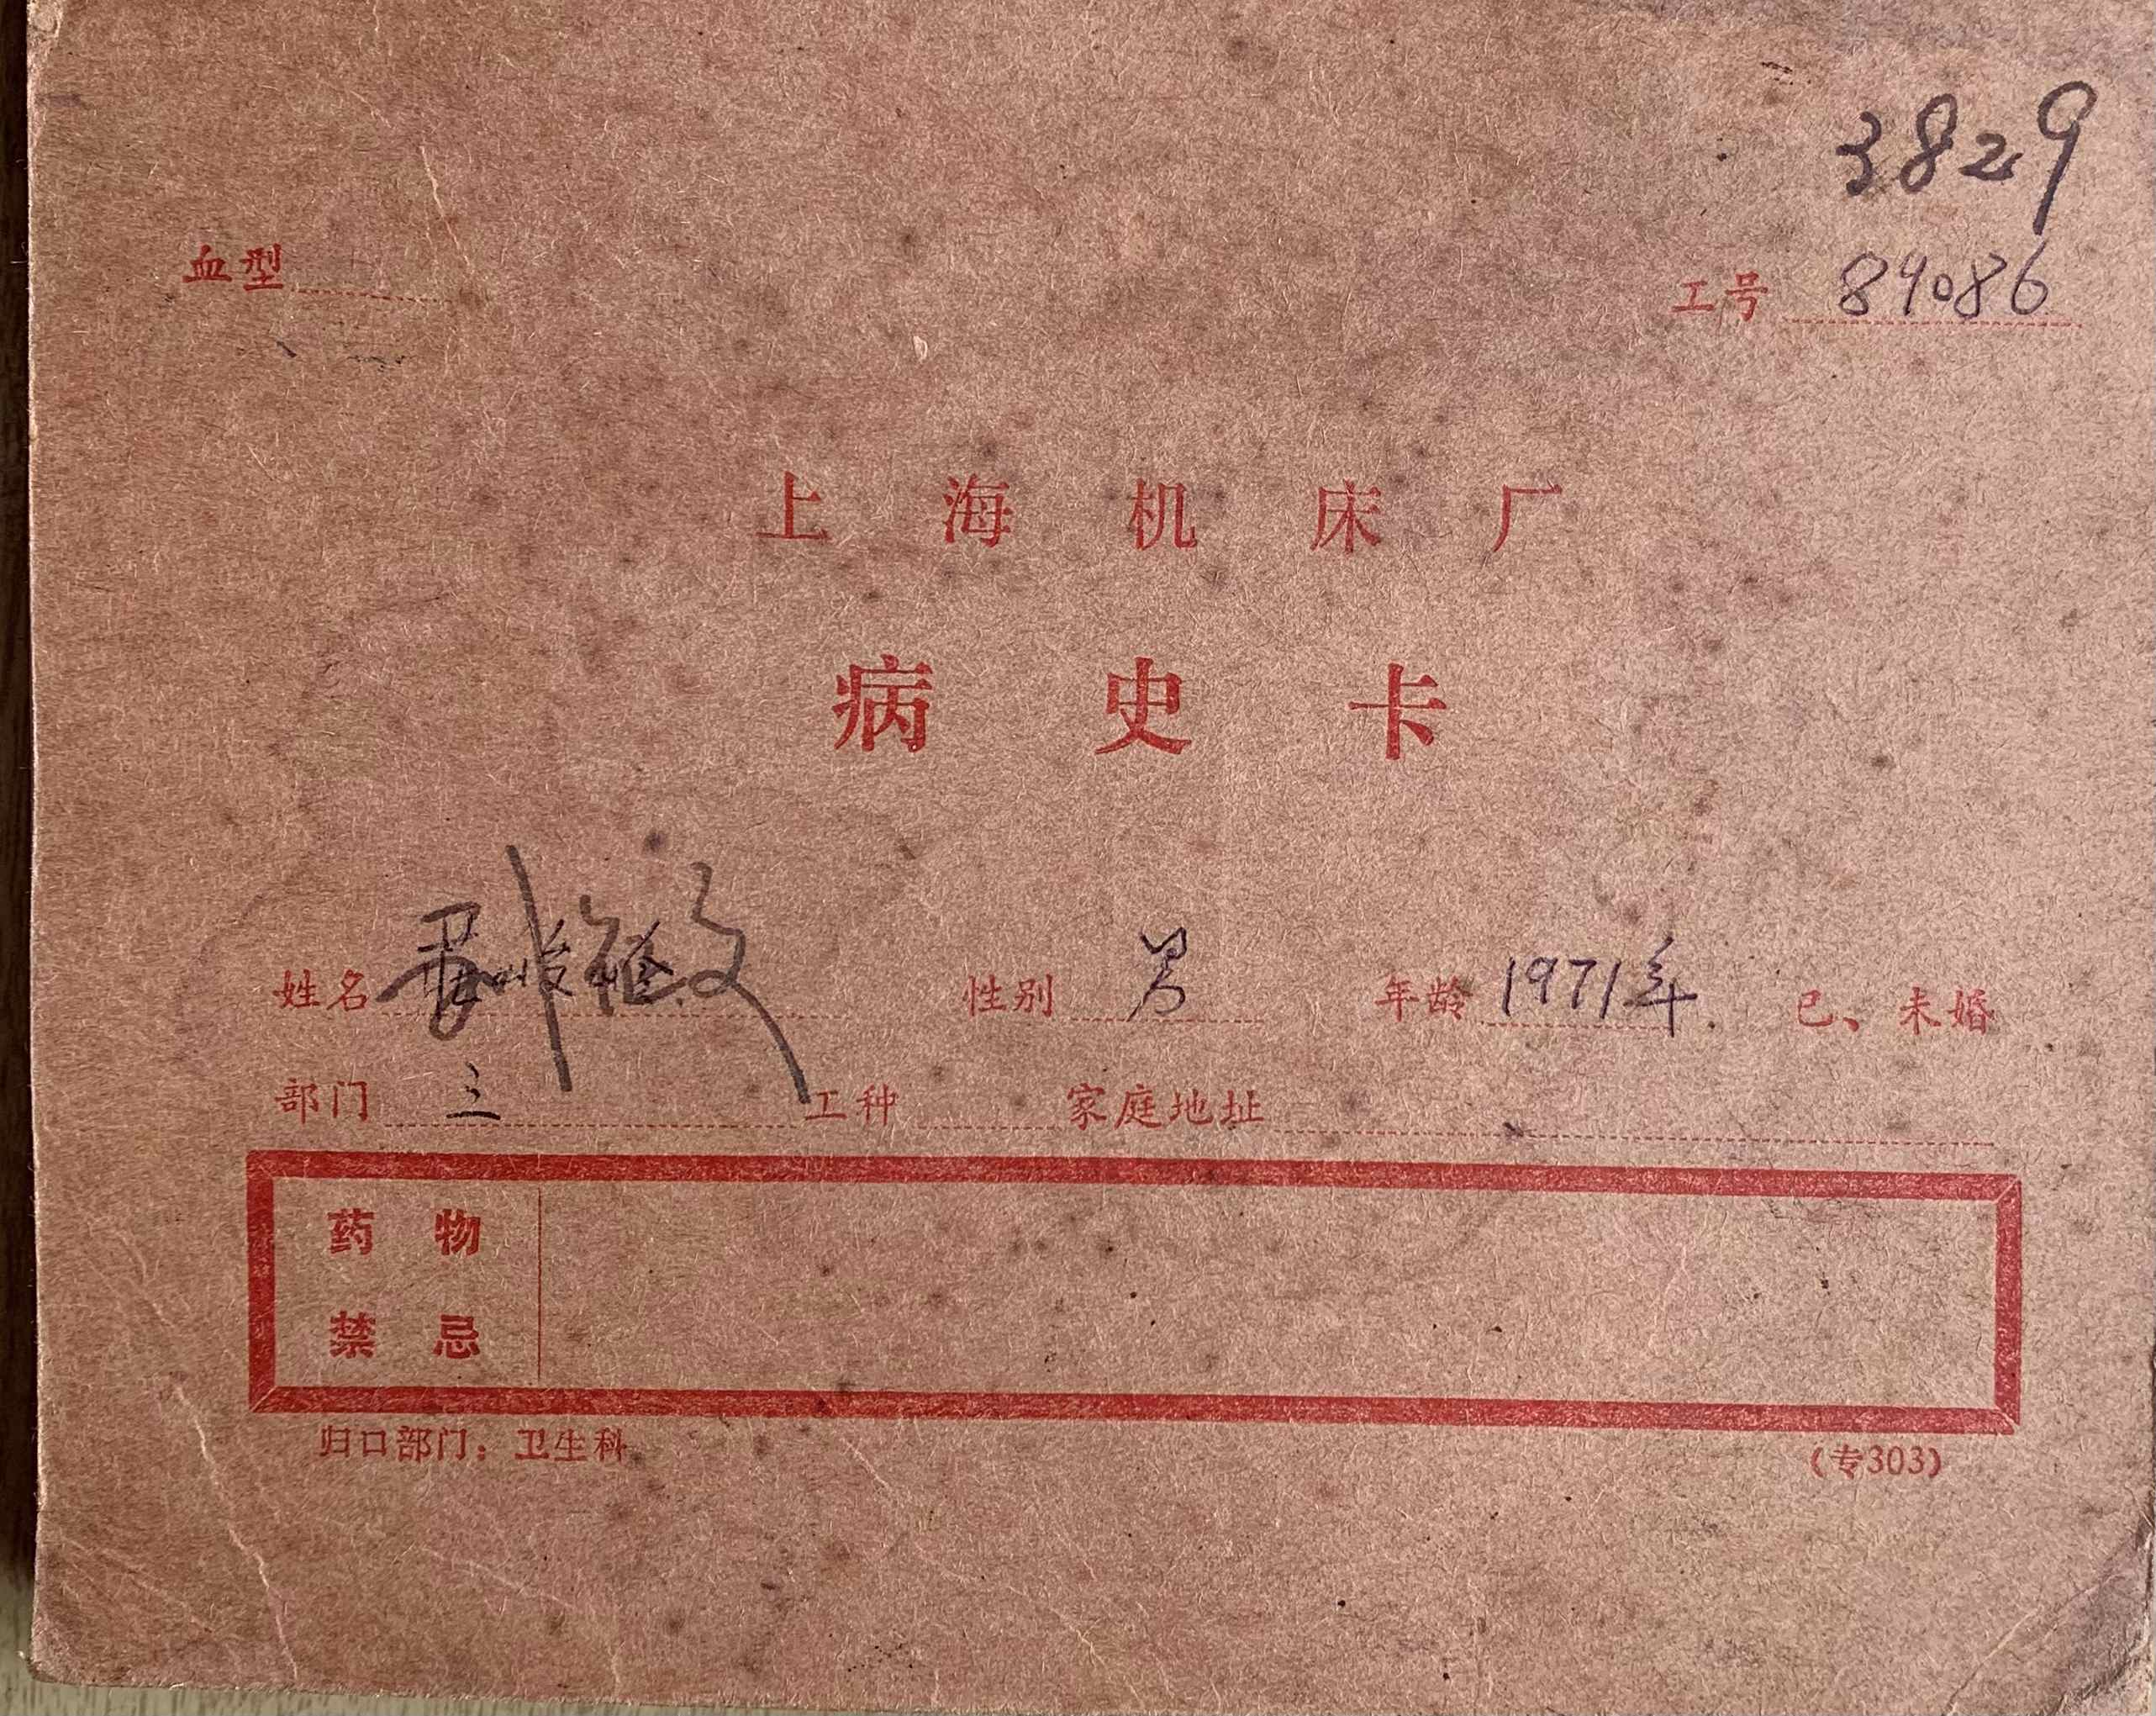 3829
血型
工号 89086
上海机床厂
病史卡
姓名 性别 男 年龄 1971年. 已、未婚
部门 三 工种 家庭地址
药物
禁忌
归口部门：卫生科 (专303)